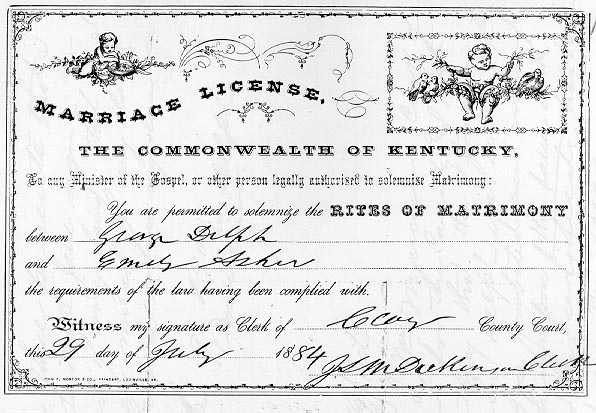 MARRIAGE LICENSE,
THE COMMONWEALTH OF KENTUCKY,
To any Minister of the Gospel, or other person legally authorised to solemnise Matrimony:
You are permitted to solemnize the RITES OF MATRIMONY
between George Delph
and Emily Asher
the requirements of the law having been complied with.
Witness my signature as Clerk of Clay County Court,
this 29 day of July 1884
JOHN P. MORTON & CO., PRINTERS, LOUISVILLE, KY.